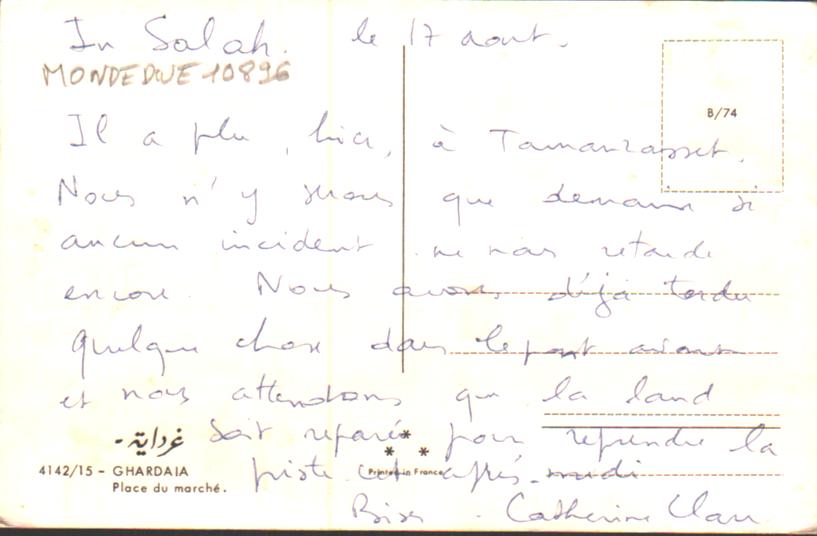 In Salah. le 17 aout.
MONDEDUE 10896
B/74
Il a plu, hier, à Tamanrasset.
Nous n'y serons que demain si
aucun incident ne nous retarde
encore. Nous avons déjà tordu
quelque chose dans le pont avant
et nous attendons que la land
soit reparée pour reprendre la
piste cet après-midi
غرداية-
4142/15 - GHARDAIA
Place du marché.
Printed in France
Bises. Catherine